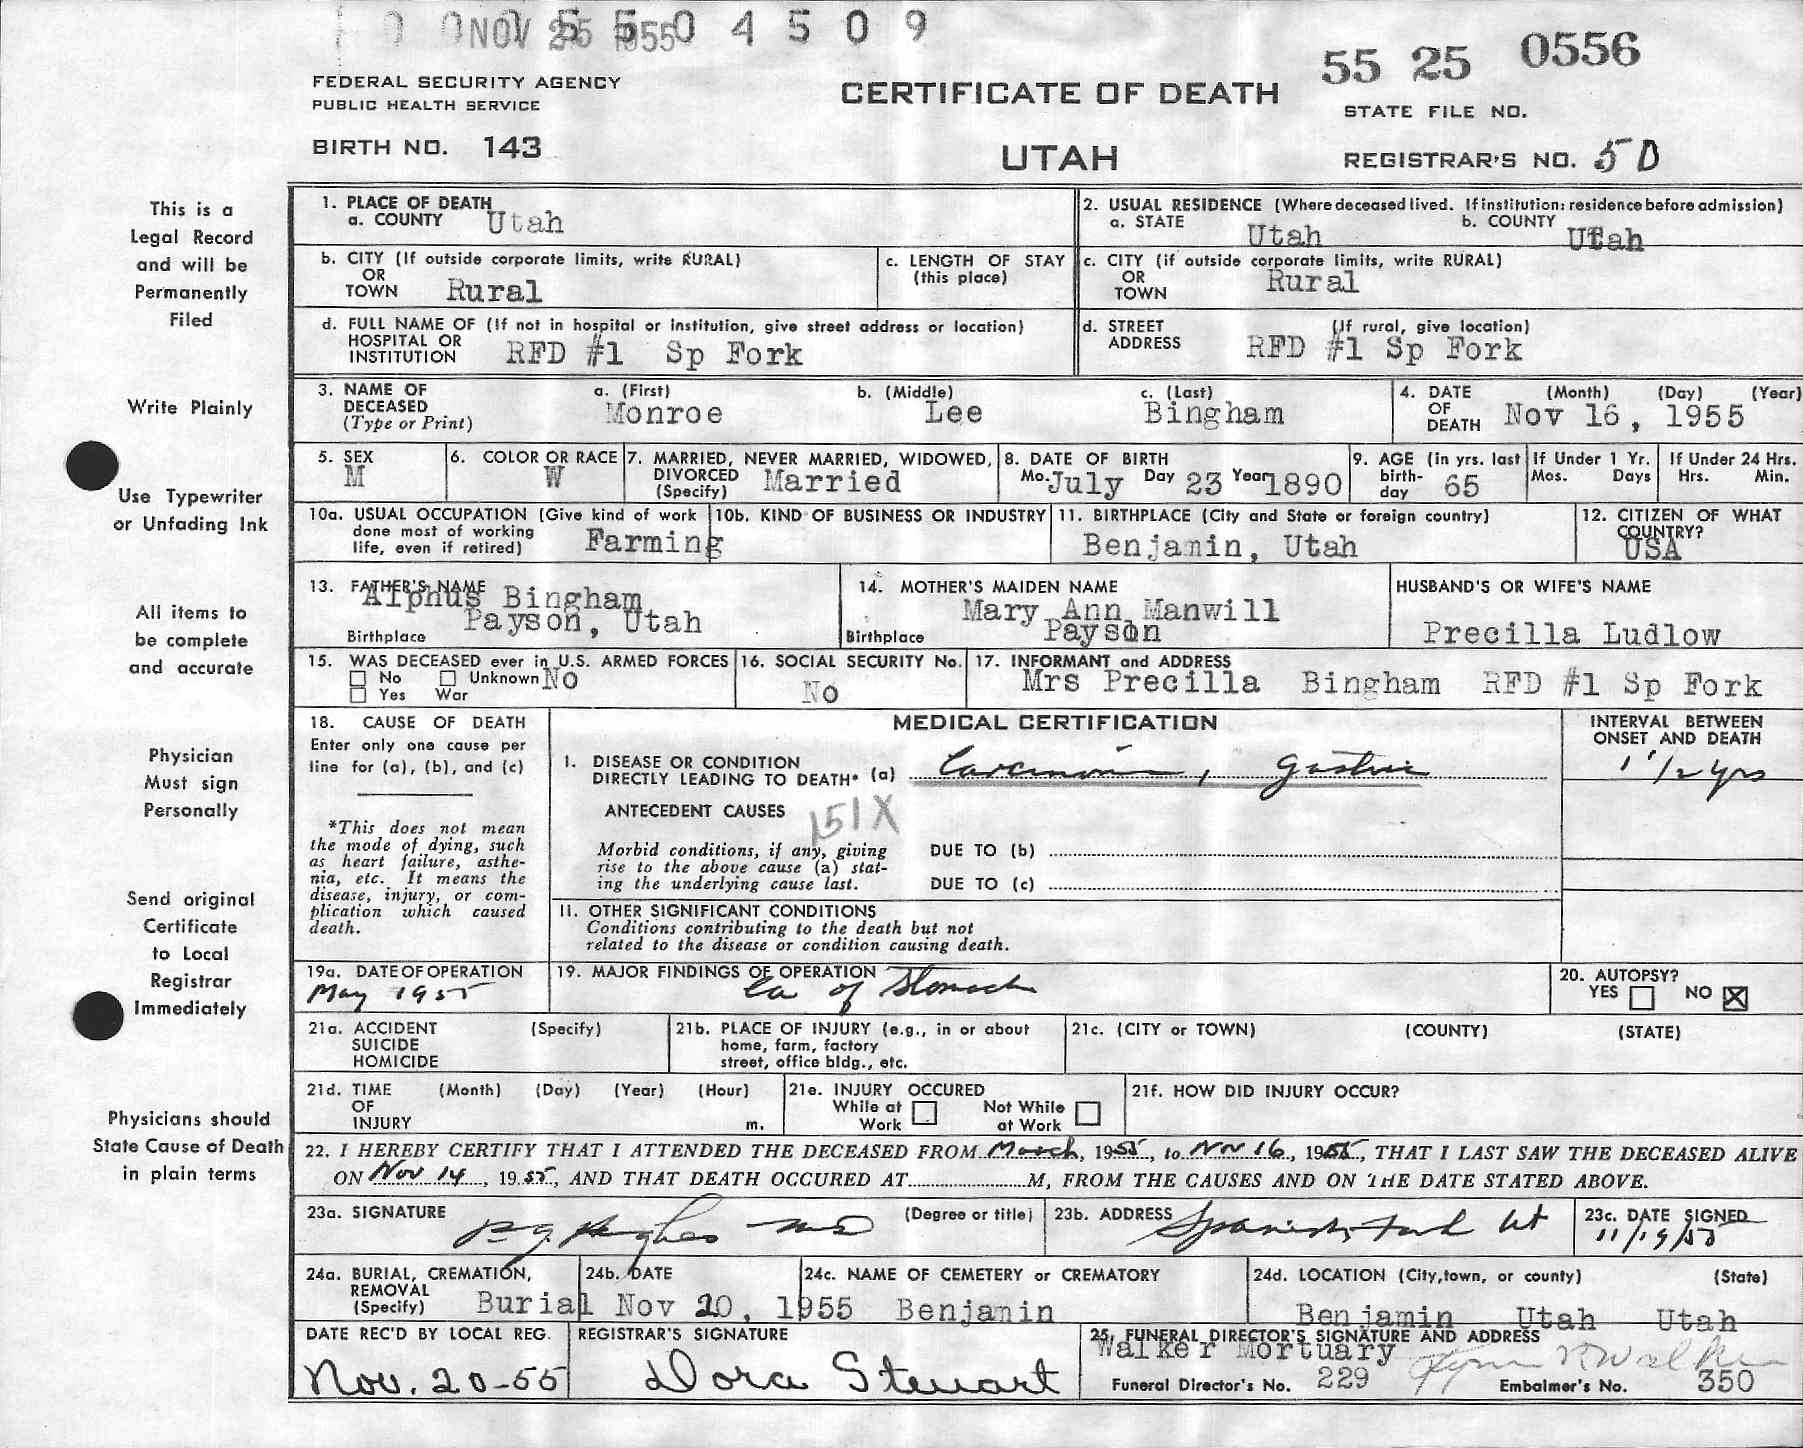 NOV 25 1955 0 4 5 0 9
55 25 0556
FEDERAL SECURITY AGENCY
PUBLIC HEALTH SERVICE
CERTIFICATE OF DEATH
STATE FILE NO.
BIRTH NO. 143
UTAH
REGISTRAR'S NO. 50
This is a
Legal Record
and will be
Permanently
Filed
Write Plainly
Use Typewriter
or Unfading Ink
All items to
be complete
and accurate
Physician
Must sign
Personally
Send original
Certificate
to Local
Registrar
Immediately
Physicians should
State Cause of Death
in plain terms
1. PLACE OF DEATH
a. COUNTY Utah
2. USUAL RESIDENCE (Where deceased lived. If institution: residence before admission)
a. STATE Utah b. COUNTY Utah
b. CITY (If outside corporate limits, write RURAL)
OR
TOWN Rural
c. LENGTH OF STAY
(this place)
c. CITY (if outside corporate limits, write RURAL)
OR
TOWN Rural
d. FULL NAME OF (If not in hospital or institution, give street address or location)
HOSPITAL OR
INSTITUTION RFD #1 Sp Fork
d. STREET (If rural, give location)
ADDRESS RFD #1 Sp Fork
3. NAME OF
DECEASED
(Type or Print)
a. (First) b. (Middle) c. (Last)
Monroe Lee Bingham
4. DATE (Month) (Day) (Year)
OF
DEATH Nov 16, 1955
5. SEX
M
6. COLOR OR RACE
W
7. MARRIED, NEVER MARRIED, WIDOWED,
DIVORCED
(Specify) Married
8. DATE OF BIRTH
Mo. July Day 23 Year 1890
9. AGE (in yrs. last
birth-
day 65
If Under 1 Yr.
Mos. Days
If Under 24 Hrs.
Hrs. Min.
10a. USUAL OCCUPATION (Give kind of work
done most of working
life, even if retired) Farming
10b. KIND OF BUSINESS OR INDUSTRY
11. BIRTHPLACE (City and State or foreign country)
Benjamin, Utah
12. CITIZEN OF WHAT
COUNTRY?
USA
13. FATHER'S NAME
Alphus Bingham
Payson, Utah
Birthplace
14. MOTHER'S MAIDEN NAME
Mary Ann Manwill
Payson
Birthplace
HUSBAND'S OR WIFE'S NAME
Precilla Ludlow
15. WAS DECEASED ever in U.S. ARMED FORCES
No Unknown No
Yes War
16. SOCIAL SECURITY No.
No
17. INFORMANT and ADDRESS
Mrs Precilla Bingham RFD #1 Sp Fork
18. CAUSE OF DEATH
Enter only one cause per
line for (a), (b), and (c)
*This does not mean
the mode of dying, such
as heart failure, asthe-
nia, etc. It means the
disease, injury, or com-
plication which caused
death.
MEDICAL CERTIFICATION
INTERVAL BETWEEN
ONSET AND DEATH
I. DISEASE OR CONDITION
DIRECTLY LEADING TO DEATH* (a) Carcinoma, gastric
1 1/2 yrs
ANTECEDENT CAUSES
151X
Morbid conditions, if any, giving
rise to the above cause (a) stat-
ing the underlying cause last.
DUE TO (b)
DUE TO (c)
II. OTHER SIGNIFICANT CONDITIONS
Conditions contributing to the death but not
related to the disease or condition causing death.
19a. DATE OF OPERATION
May 1955
19. MAJOR FINDINGS OF OPERATION
Ca of Stomach
20. AUTOPSY?
YES NO X
21a. ACCIDENT (Specify)
SUICIDE
HOMICIDE
21b. PLACE OF INJURY (e.g., in or about
home, farm, factory
street, office bldg., etc.
21c. (CITY or TOWN) (COUNTY) (STATE)
21d. TIME (Month) (Day) (Year) (Hour)
OF
INJURY m.
21e. INJURY OCCURED
While at Not While
Work at Work
21f. HOW DID INJURY OCCUR?
22. I HEREBY CERTIFY THAT I ATTENDED THE DECEASED FROM March, 1955, to Nov 16, 1955, THAT I LAST SAW THE DECEASED ALIVE
ON Nov 14, 1955, AND THAT DEATH OCCURED AT M, FROM THE CAUSES AND ON THE DATE STATED ABOVE.
23a. SIGNATURE (Degree or title)
Hughes MD
23b. ADDRESS
Spanish Fork Ut
23c. DATE SIGNED
11/19/55
24a. BURIAL, CREMATION,
REMOVAL
(Specify) Burial
24b. DATE
Nov 20, 1955
24c. NAME OF CEMETERY or CREMATORY
Benjamin
24d. LOCATION (City, town, or county) (State)
Benjamin Utah Utah
DATE REC'D BY LOCAL REG.
Nov. 20-55
REGISTRAR'S SIGNATURE
Dora Stewart
25. FUNERAL DIRECTOR'S SIGNATURE AND ADDRESS
Walker Mortuary
Funeral Director's No. 229 Embalmer's No. 350